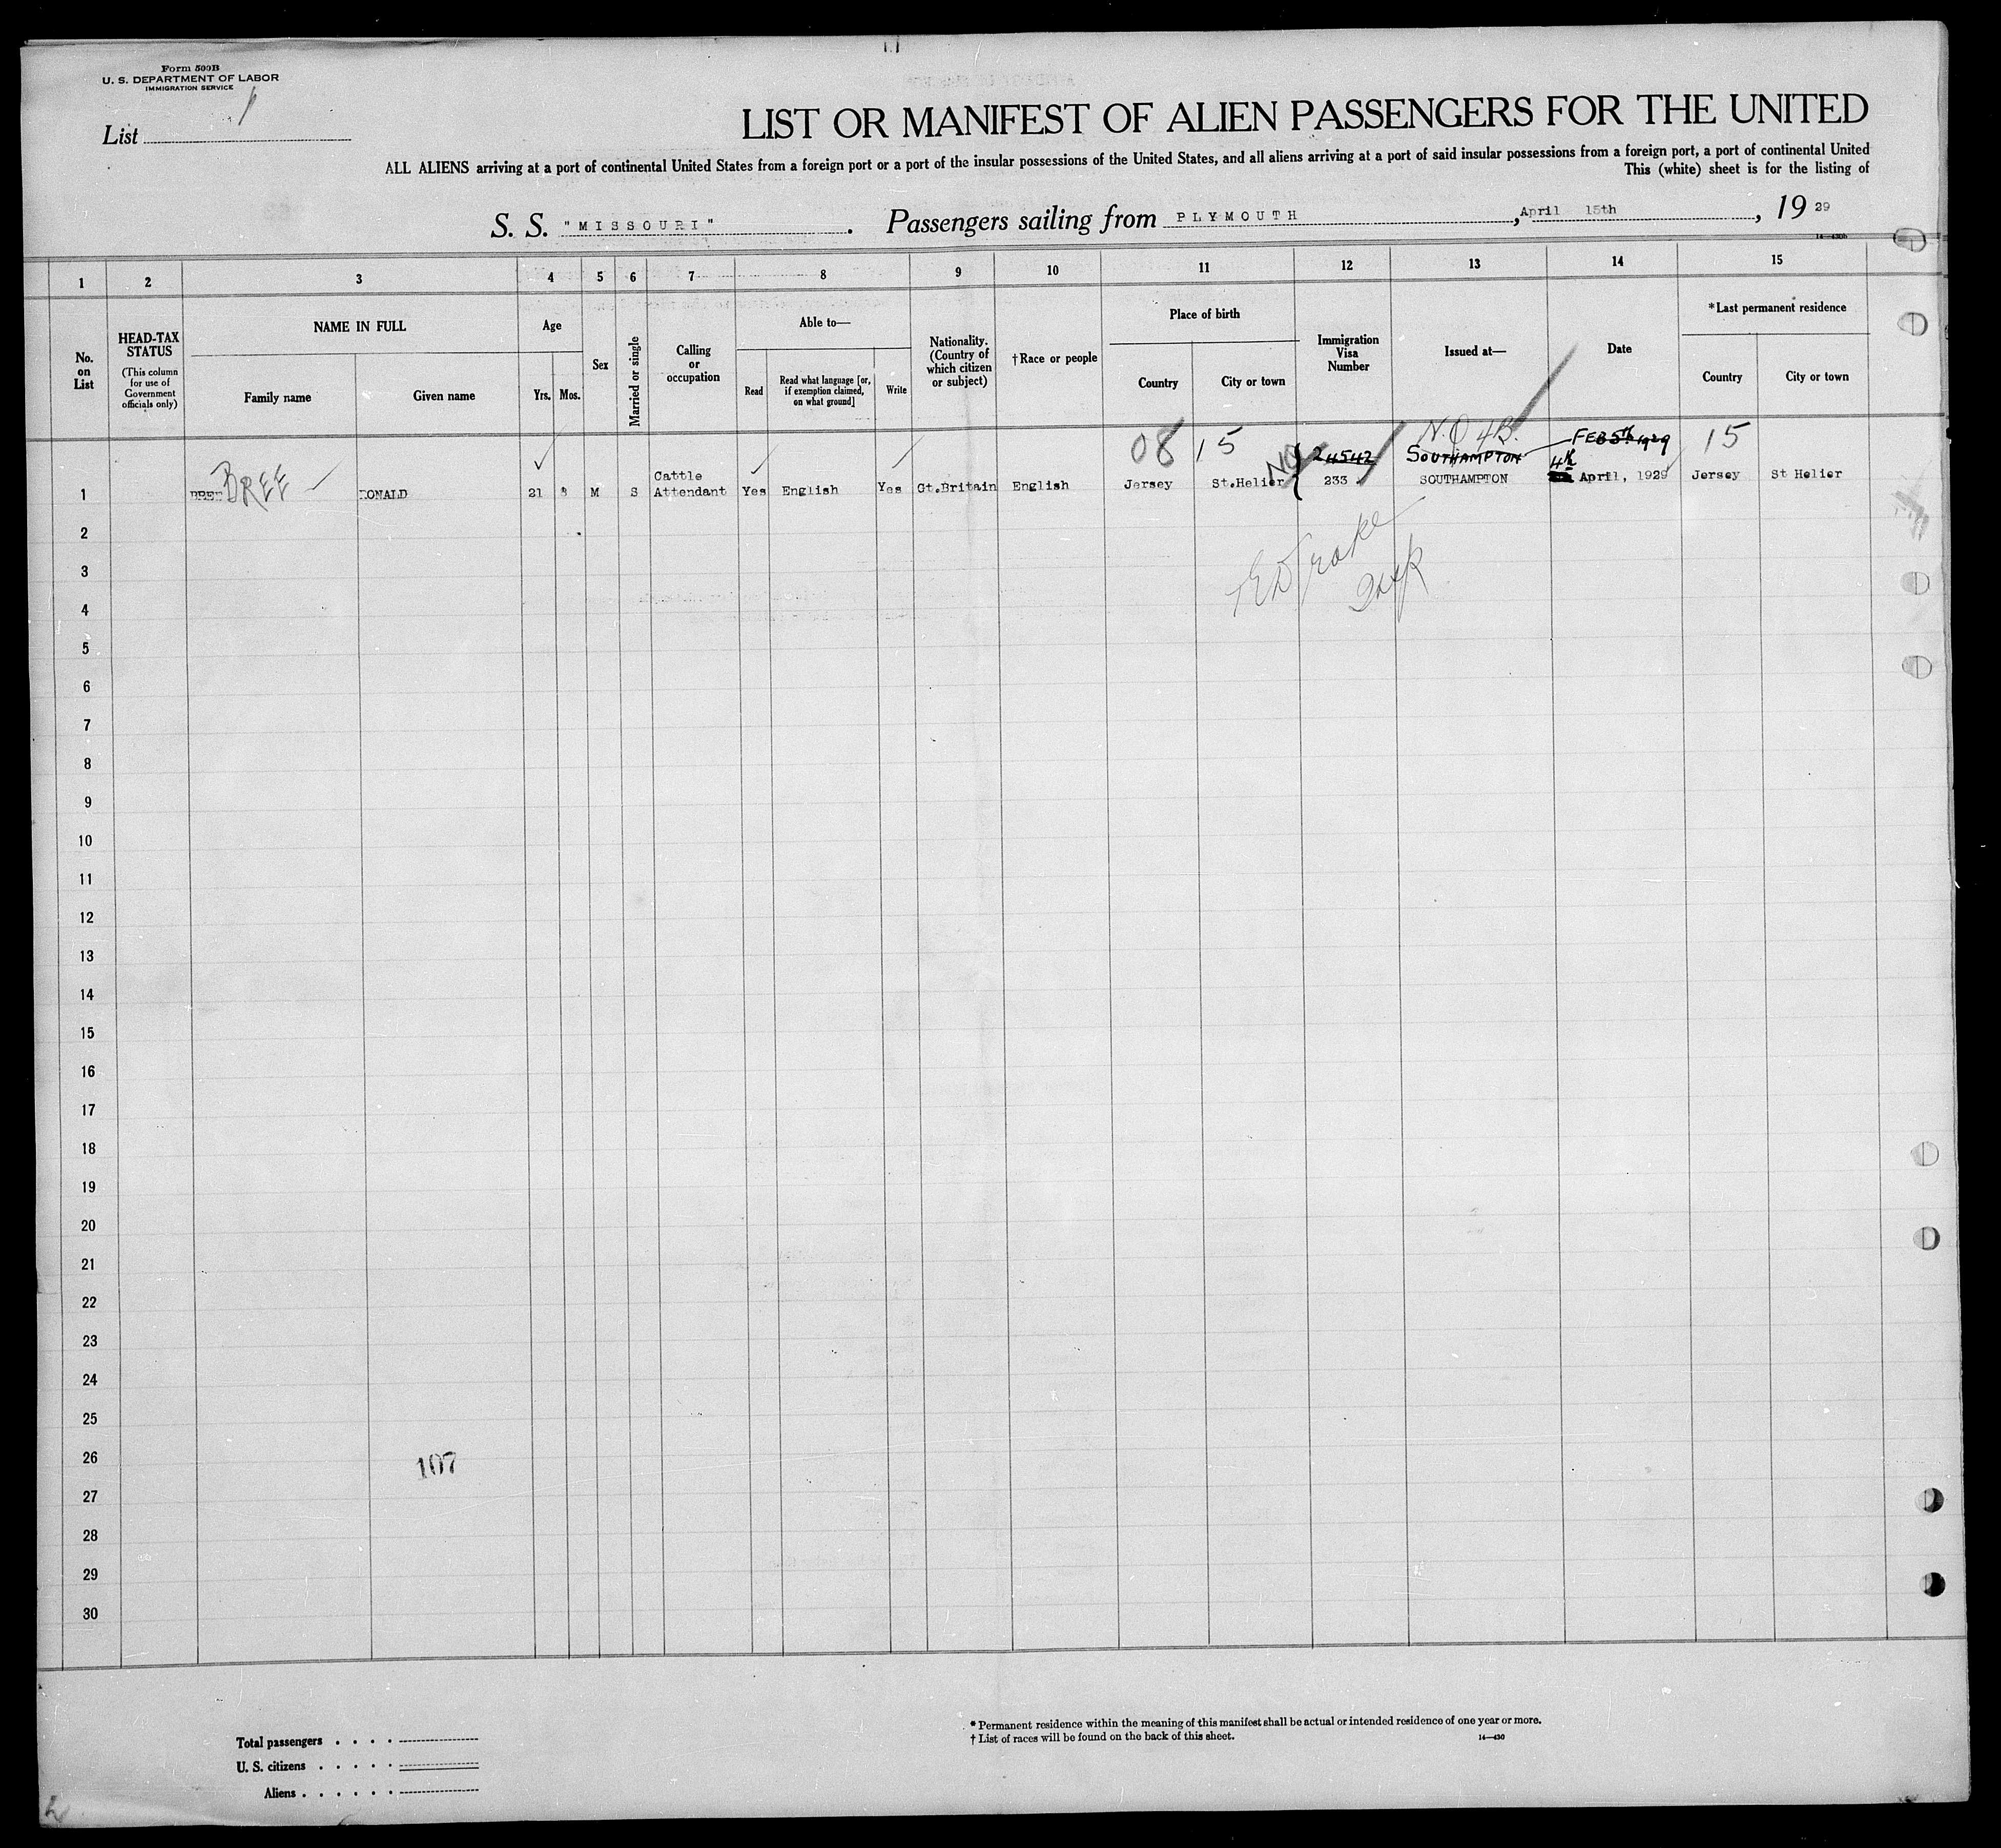 Form 500B
U. S. DEPARTMENT OF LABOR
IMMIGRATION SERVICE
List 1
LIST OR MANIFEST OF ALIEN PASSENGERS FOR THE UNITED
ALL ALIENS arriving at a port of continental United States from a foreign port or a port of the insular possessions of the United States, and all aliens arriving at a port of said insular possessions from a foreign port, a port of continental United
This (white) sheet is for the listing of
S. S. "MISSOURI". Passengers sailing from PLYMOUTH, April 15th, 1929
14—430b
1 2 3 4 5 6 7 8 9 10 11 12 13 14 15
No. on List
HEAD-TAX STATUS
(This column for use of Government officials only)
NAME IN FULL
Family name
Given name
Age
Yrs. Mos.
Sex
Married or single
Calling or occupation
Able to—
Read
Read what language [or, if exemption claimed, on what ground]
Write
Nationality. (Country of which citizen or subject)
†Race or people
Place of birth
Country
City or town
Immigration Visa Number
Issued at—
Date
*Last permanent residence
Country
City or town
08 15 No 24542 SOUTHAMPTON FEB 5th 1929 15
1 BREE RONALD 21 M S Cattle Attendant Yes English Yes Gt.Britain English Jersey St.Helier 233 SOUTHAMPTON 4th April, 1929 Jersey St Helier
2
3
4
5
6
7
8
9
10
11
12
13
14
15
16
17
18
19
20
21
22
23
24
25
26
107
27
28
29
30
Total passengers
U. S. citizens
Aliens
* Permanent residence within the meaning of this manifest shall be actual or intended residence of one year or more.
† List of races will be found on the back of this sheet.
14—430